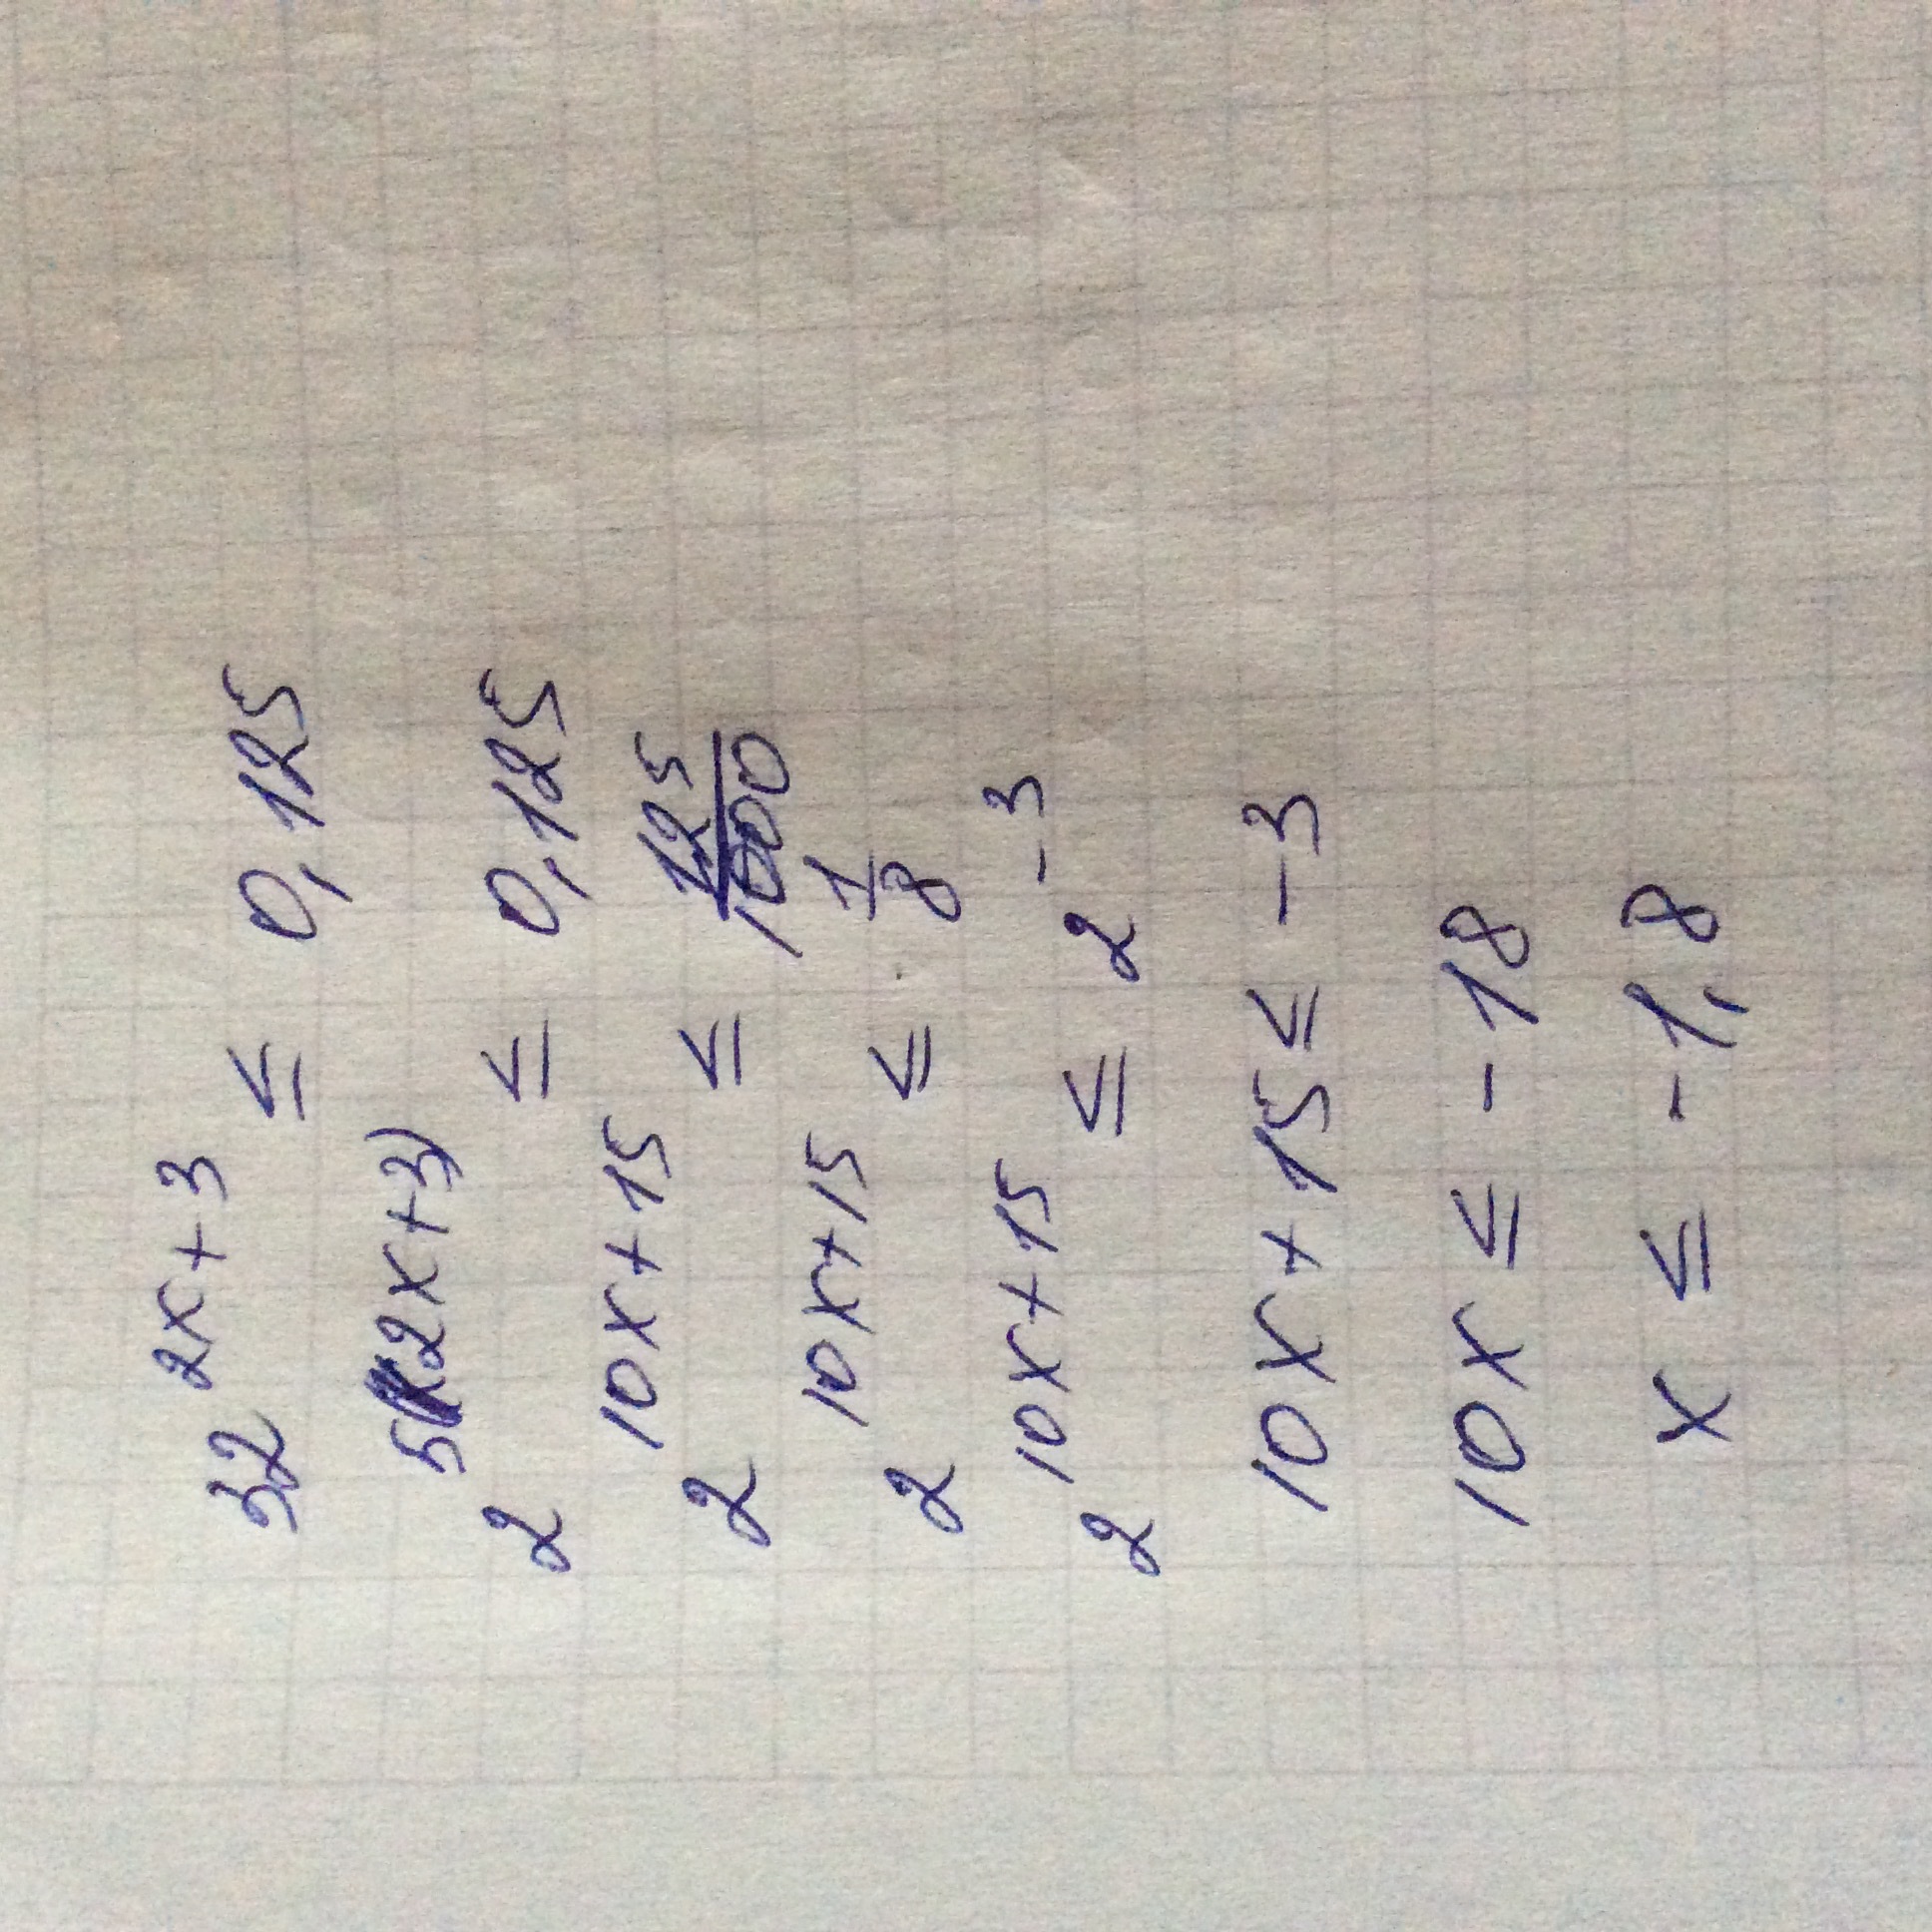 32^{2x+3} ≤ 0,125
2^{5(2x+3)} ≤ 0,125
2^{10x+15} ≤ \frac{125}{1000}
2^{10x+15} ≤ \frac{1}{8}
2^{10x+15} ≤ 2^{-3}
10x+15 ≤ -3
10x ≤ -18
x ≤ -1,8